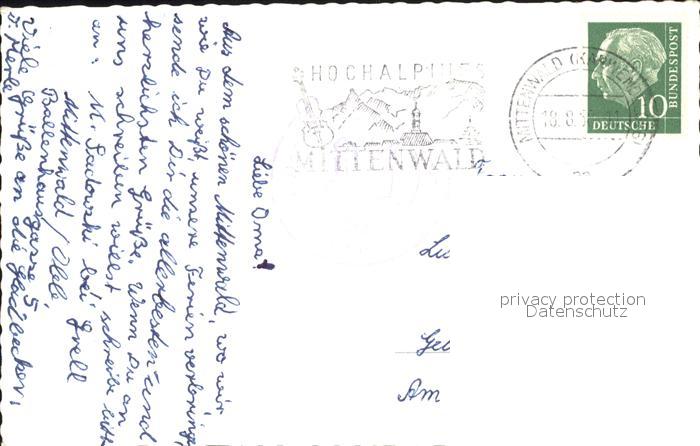 HOCHALPINES
MITTENWALD
MITTENWALD (KARWENDEL)
18.8.5
DEUTSCHE
BUNDESPOST
10
Liebe Oma!
Aus dem schönen Mittenwald, wo wir,
wie Du weißt, unsere Ferien verbring
sende ich Dir die allerbesten und
herzlichsten Grüße. Wenn Du an
uns schreiben willst schreibe bitte
an: M. Sadowski bei
Mittenwald / Obb.
Ballenhausgasse 5
Viele Grüße an die Gladbecker,
Lu
Ge
Am
privacy protection
Datenschutz